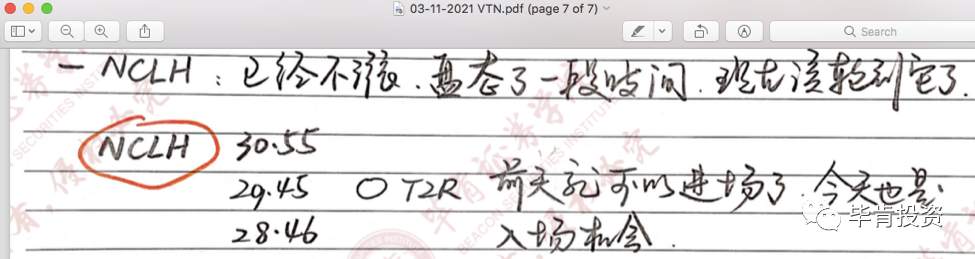 03-11-2021 VTN.pdf (page 7 of 7)
Search
— NCLH : 已经不涨、盘态了一段时间. 现在该轮到它了.
NCLH 30.55
29.45 O T2R 前天就可以进场了. 今天也是
28.46 入场机会.
毕肯投资
毕肯证券学
BEACON SECURITIES INSTITU